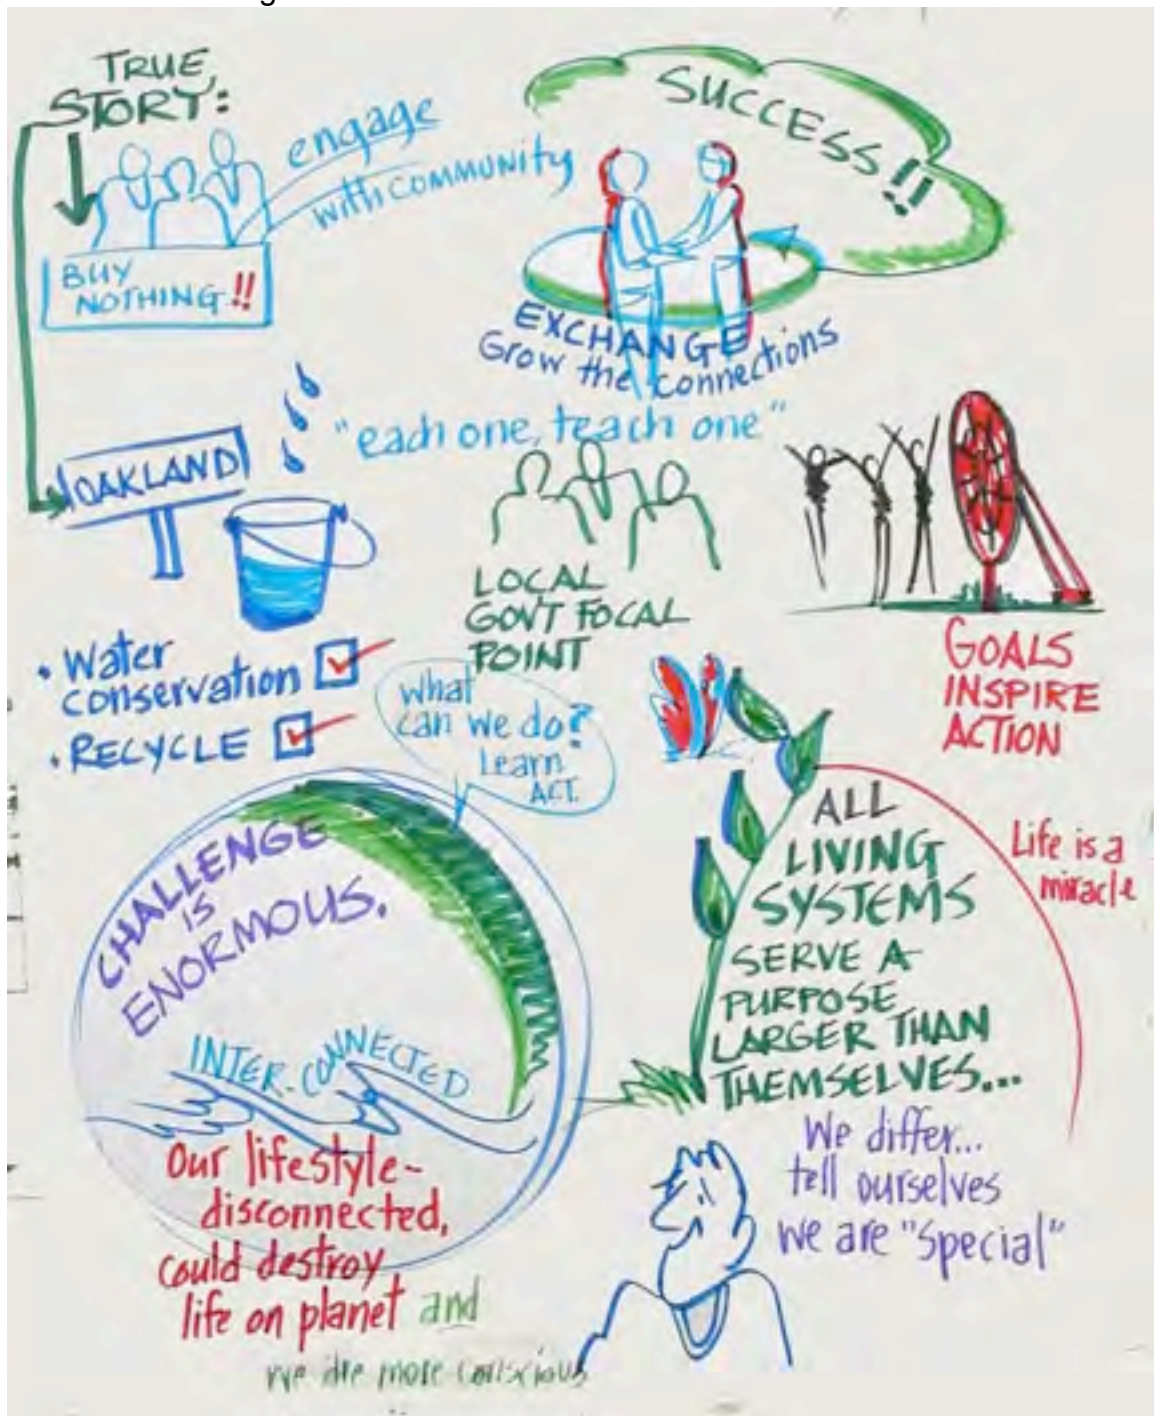 TRUE
STORY:
engage
with COMMUNITY
BUY
NOTHING!!
SUCCESS!!
EXCHANGE
Grow the connections
"each one, teach one"
OAKLAND
LOCAL
GOV'T FOCAL
POINT
GOALS
INSPIRE
ACTION
• Water
conservation
• RECYCLE
What
can we do?
Learn
ACT.
CHALLENGE
IS
ENORMOUS.
INTER-CONNECTED
Our lifestyle-
disconnected,
could destroy
life on planet and
we are more conscious
ALL
LIVING
SYSTEMS
SERVE A
PURPOSE
LARGER THAN
THEMSELVES...
Life is a
miracle
We differ...
tell ourselves
we are "Special"